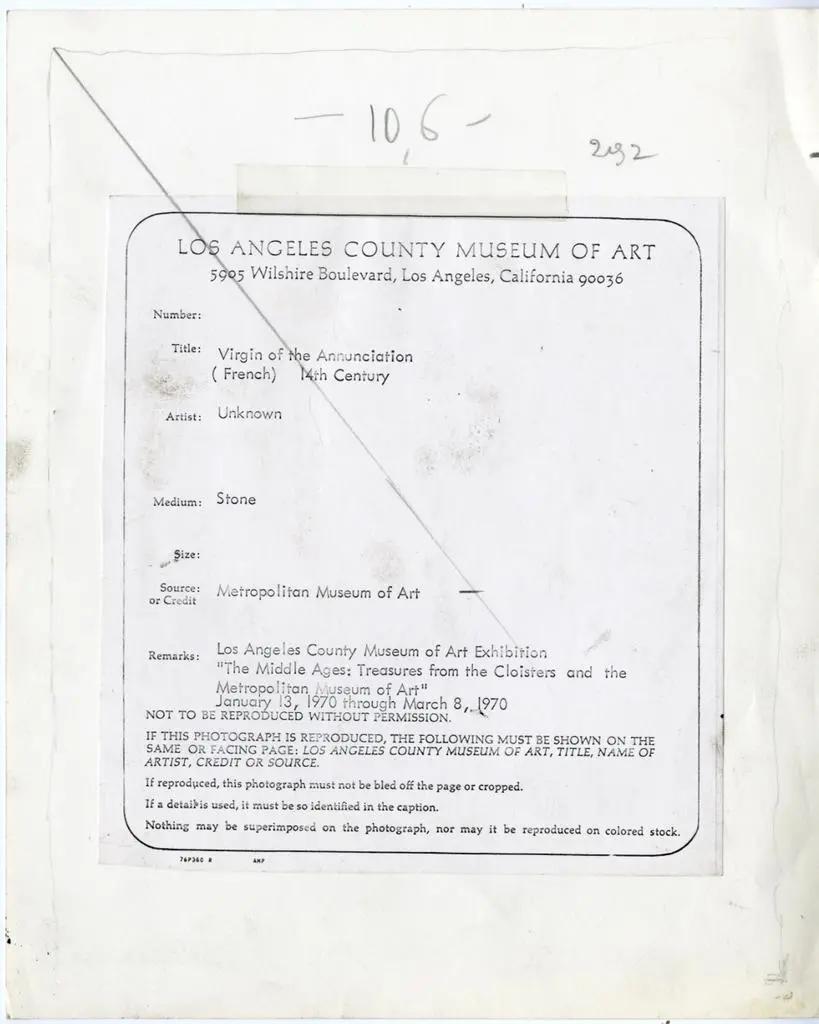 — 10,6 —
292
LOS ANGELES COUNTY MUSEUM OF ART
5905 Wilshire Boulevard, Los Angeles, California 90036
Number:
Title: Virgin of the Annunciation
( French) 14th Century
Artist: Unknown
Medium: Stone
Size:
Source: or Credit Metropolitan Museum of Art
Remarks: Los Angeles County Museum of Art Exhibition
"The Middle Ages: Treasures from the Cloisters and the
Metropolitan Museum of Art"
January 13, 1970 through March 8, 1970
NOT TO BE REPRODUCED WITHOUT PERMISSION.
IF THIS PHOTOGRAPH IS REPRODUCED, THE FOLLOWING MUST BE SHOWN ON THE
SAME OR FACING PAGE: LOS ANGELES COUNTY MUSEUM OF ART, TITLE, NAME OF
ARTIST, CREDIT OR SOURCE.
If reproduced, this photograph must not be bled off the page or cropped.
If a detail is used, it must be so identified in the caption.
Nothing may be superimposed on the photograph, nor may it be reproduced on colored stock.
76P360 R AMP